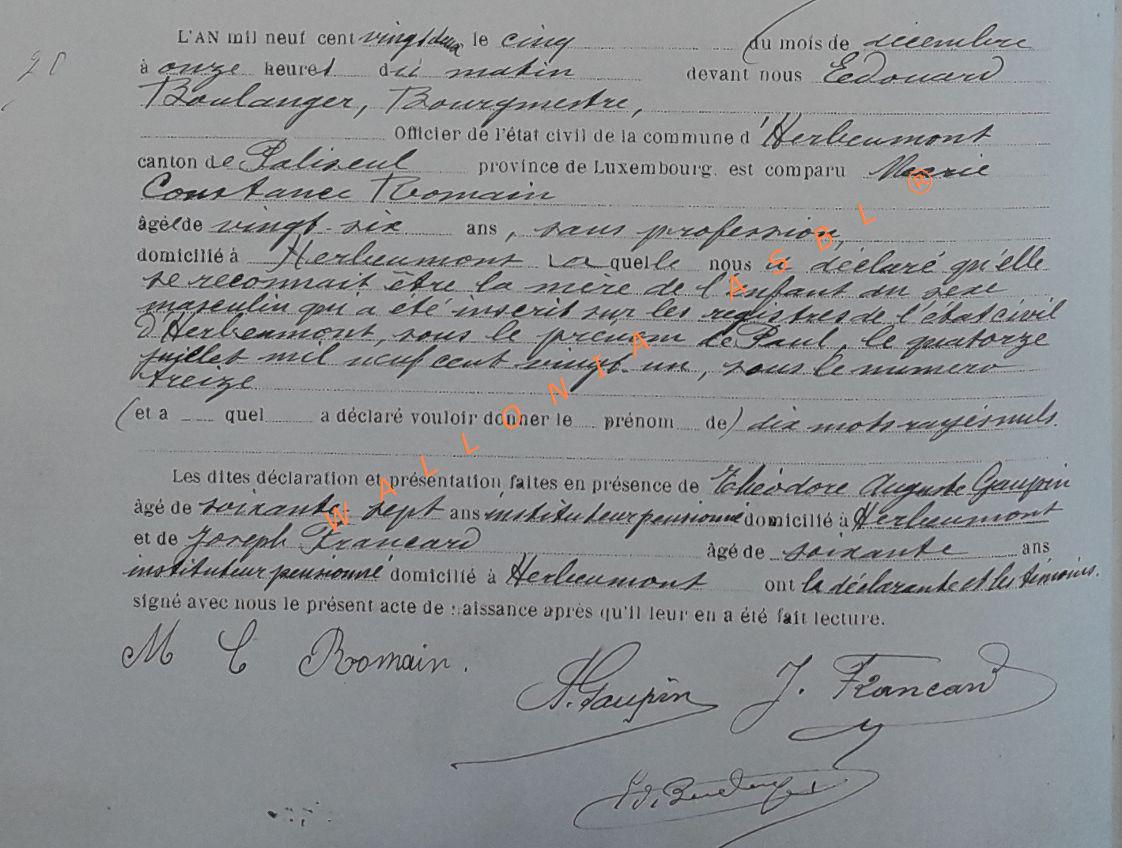 L'AN mil neuf cent vingt deux le cinq du mois de décembre
à onze heures du matin devant nous Edouard
Boulanger, Bourgmestre,
Officier de l'état civil de la commune d'Herbeumont
canton de Paliseul province de Luxembourg. est comparu Marie
Constance Romain
âgée de vingt-six ans, sans profession,
domicilié à Herbeumont laquelle nous a déclaré qu'elle
se reconnait être la mère de l'enfant du sexe
masculin qui a été inscrit sur les registres de l'état civil
d'Herbeumont, sous le prénom de Paul, le quatorze
juillet mil neuf cent vingt-un, sous le numéro
treize
(et a quel a déclaré vouloir donner le prénom de) dix mots rayés nuls.
Les dites déclaration et présentation faites en présence de Théodore Auguste Gaupin
âgé de soixante sept ans instituteur pensionné domicilié à Herbeumont
et de Joseph Francard âgé de soixante ans
instituteur pensionné domicilié à Herbeumont ont la déclarante et les témoins.
signé avec nous le présent acte de naissance après qu'il leur en a été fait lecture.
M C Romain.
A. Gaupin J. Francard
Ed. Boulanger
WALLONIA ASBL ®